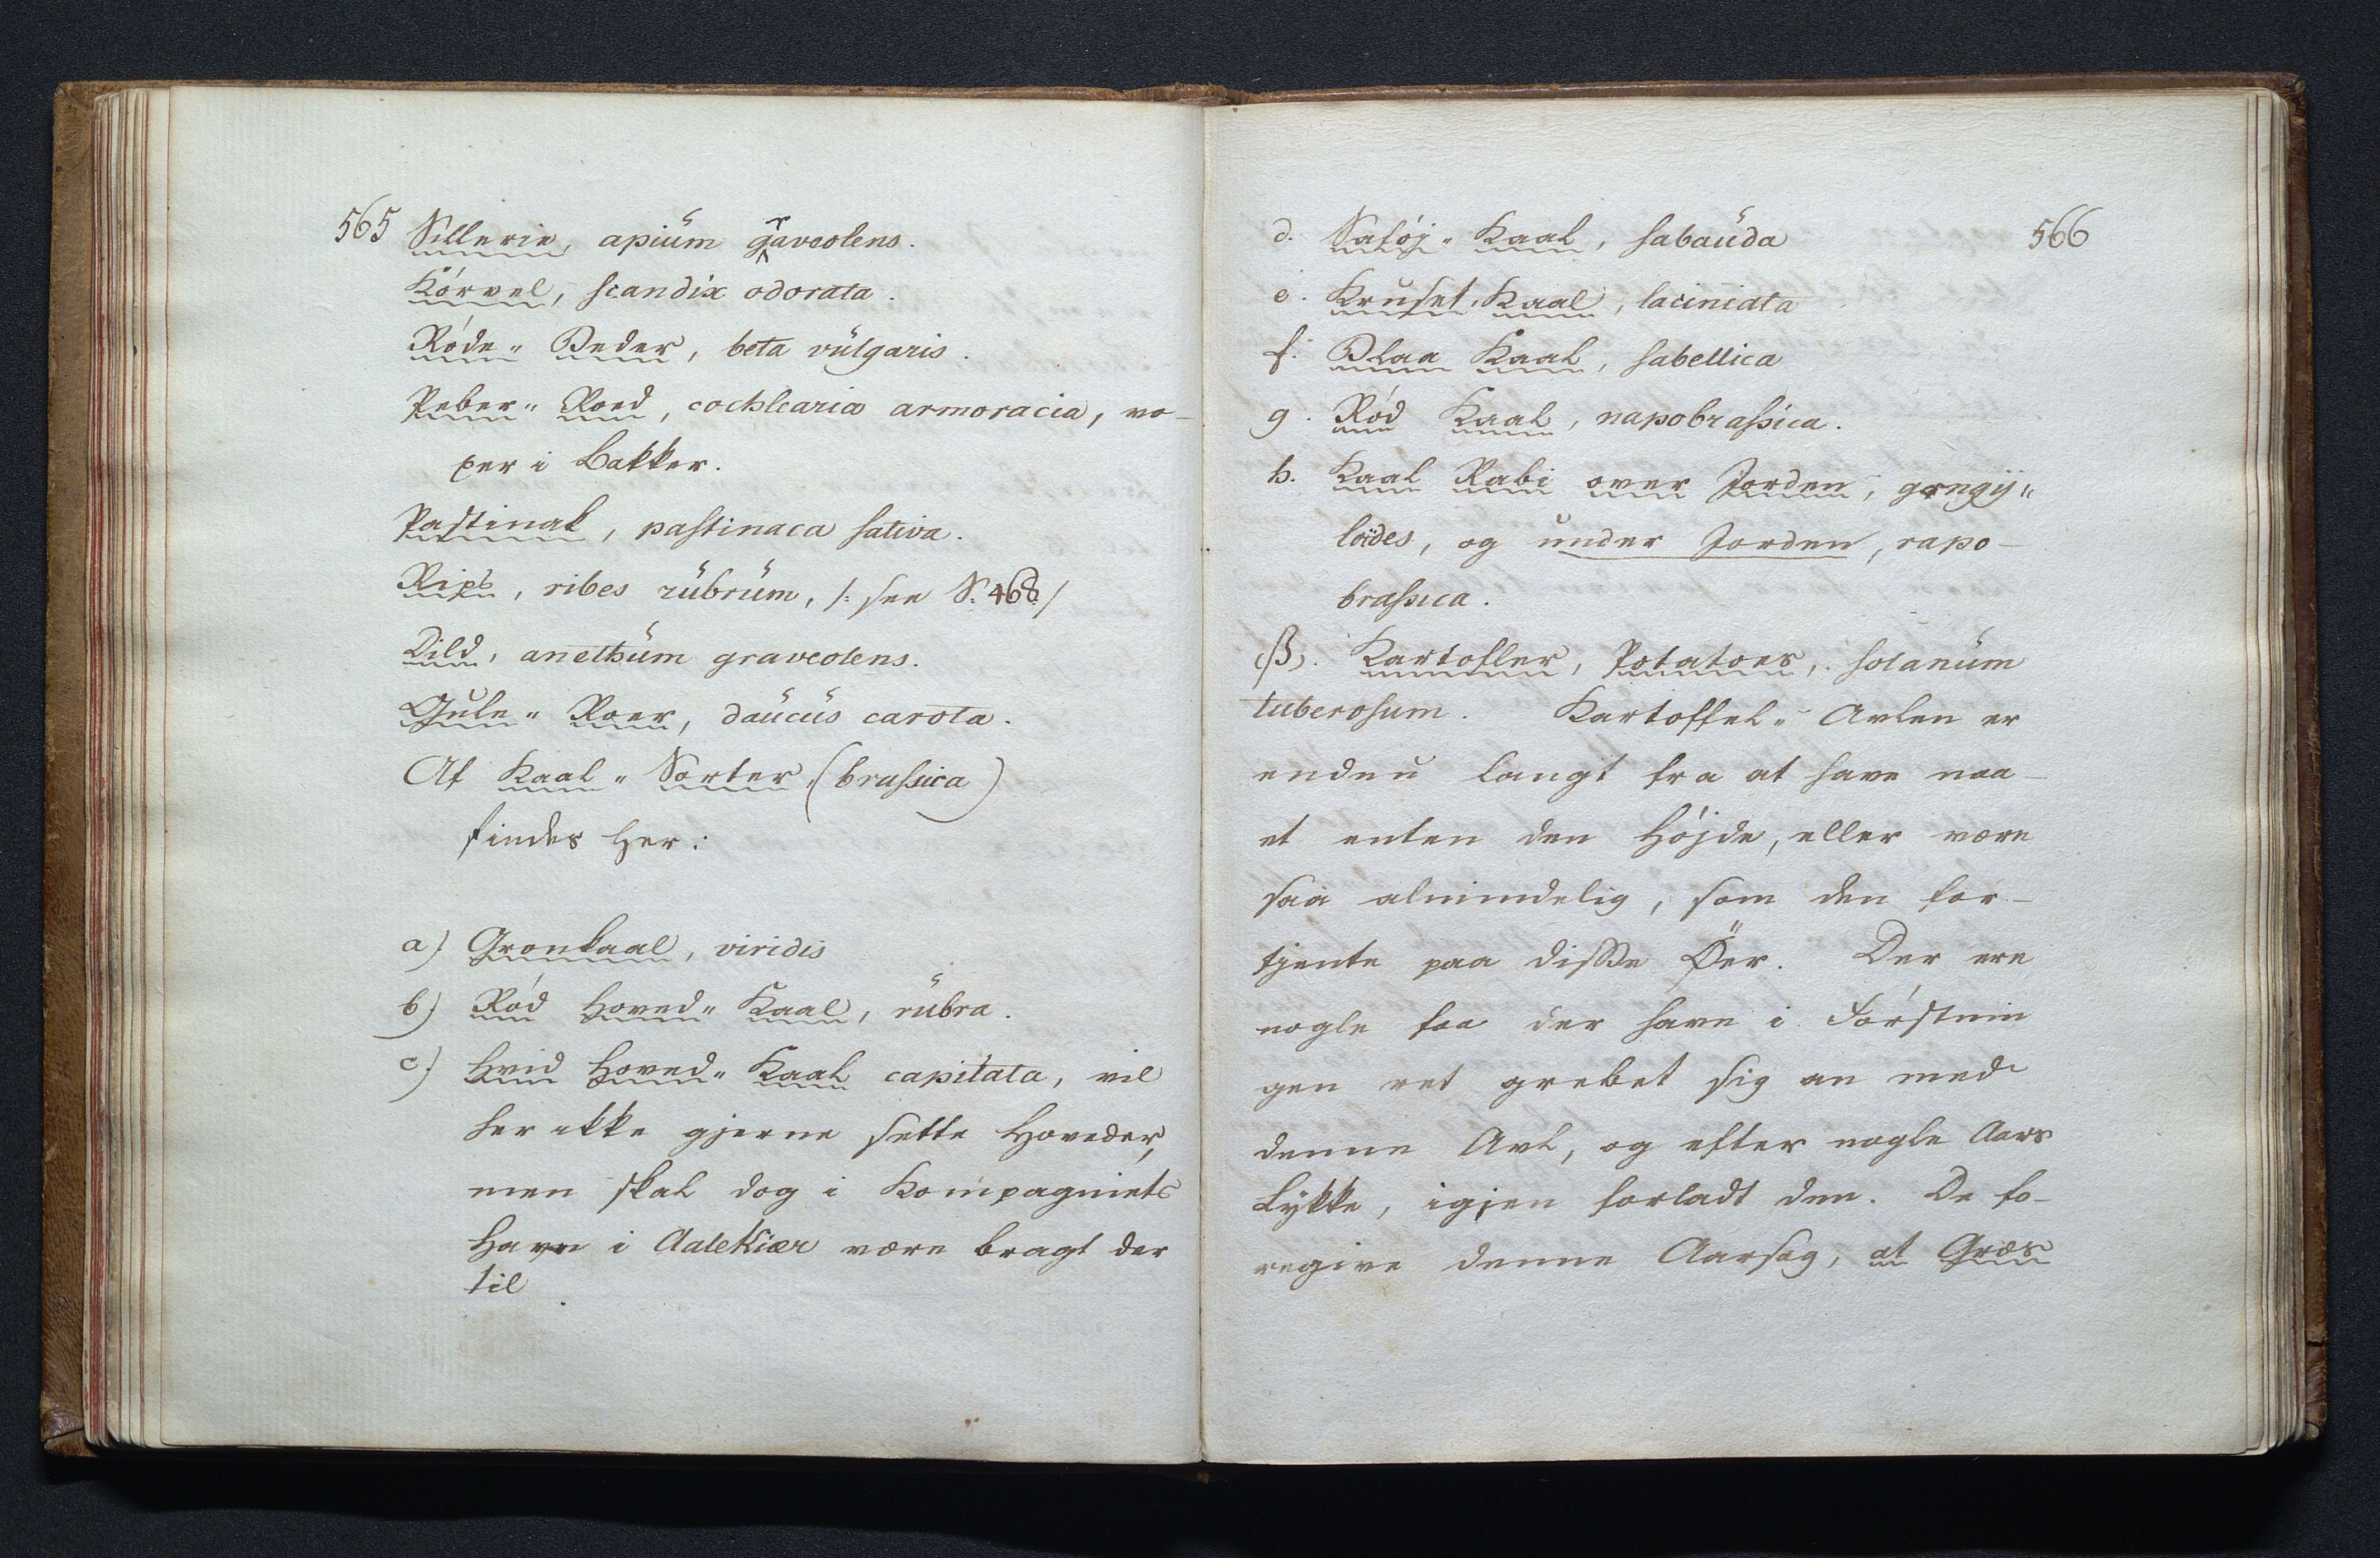 565 Sillerie, apiŭm graveolens.
Körvel, scandix odorata.
Röde" Beder, beta vŭlgaris.
Peber" Roed, cochlearia armoracia, vo-
xer i Bakker.
Pastinak, pastinaca sativa.
Rips, ribes rŭbrŭm, /: see S. 468 /
Dild, anethŭm graveolens.
Gule" Roer, daŭcŭs carota.
Af Kaal" Sorter (brassica)
findes her:
a) Grønkaal, viridis
b) Rød Hoved" Kaal, rŭbra.
c) Hvid Hoved" Kaal capitata, vil
her ikke gjerne sette Hoveder,
men skal dog i Kompagniets
Have i Aalekiær være bragt der
til
566
d. Saføj" Kaal, sabaŭda
e. Kruset Kaal, laciniata
f. Blaa Kaal, sabellica
g. Rød Kaal, napobrassica.
h. Kaal Rabi over Jorden, gongÿ"
loides, og under Jorden, rapo-
brassica.
(β). Kartofler, Potatoes, solanŭm
tuberosum. Kartoffel" Avlen er
endnu langt fra at have naa-
et enten den Højde, eller være
saa almindelig, som den for-
tjente paa disse Øer. Der ere
nogle faa der have i Førstnin
gen ret grebet sig an med
denne Avl, og efter nogle Aars
Lykke, igjen forladt den. De fo-
regive denne Aarsag, at Græs